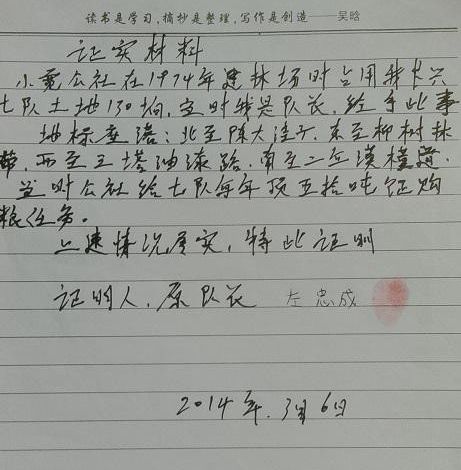 读书是学习,摘抄是整理,写作是创造——吴晗
证实材料
小 公社在1974年建林场时占用我大兴
七队土地130垧,当时我是队长,经手此事
地标查语:北至陈大洼子,东至柳树林
带,西至三塔油漆路,南至二左漠模道.
当时公社给七队每年顶五拾吨征购
粮任务。
上述情况属实,特此证明
证明人,原队长 左忠成
2014年.3月6日